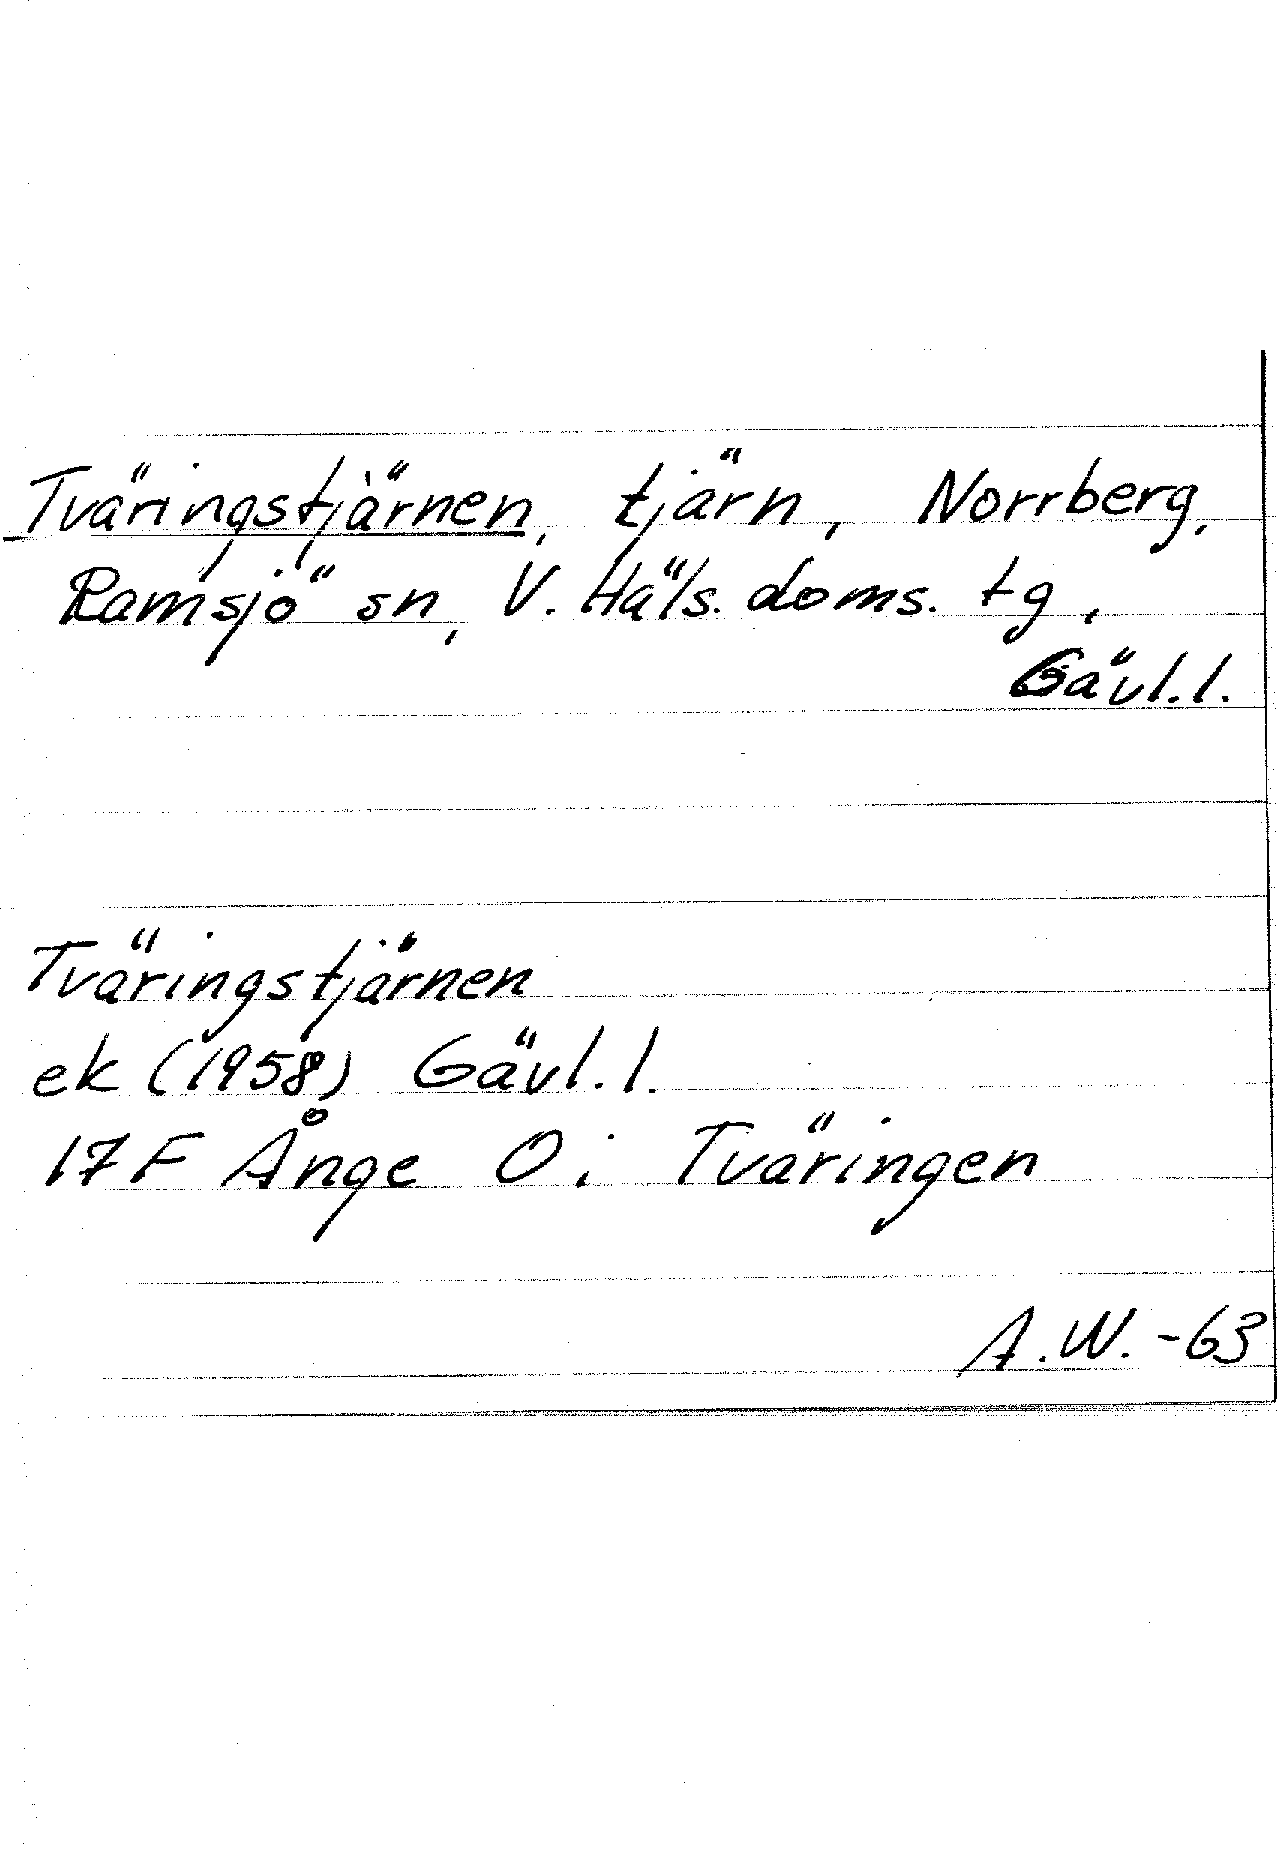 Tväringstjärnen, tjärn, Norrberg,
Ramsjö sn, V. Häls. doms. tg,
Gävl. l.
Tväringstjärnen
ek (1958) Gävl. l.
17 F Ånge O; Tväringen
A.W. -63